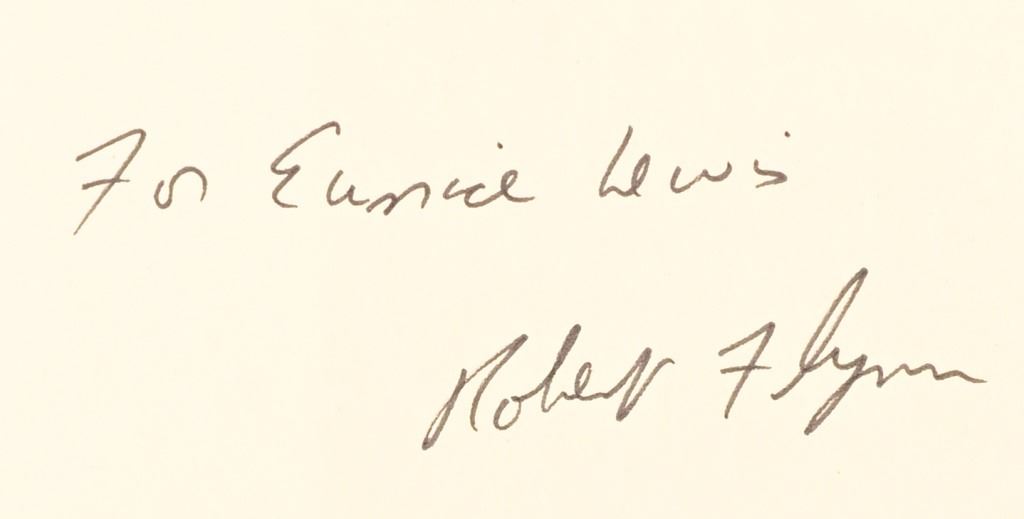 For Eunice Lewis
Robert Flynn